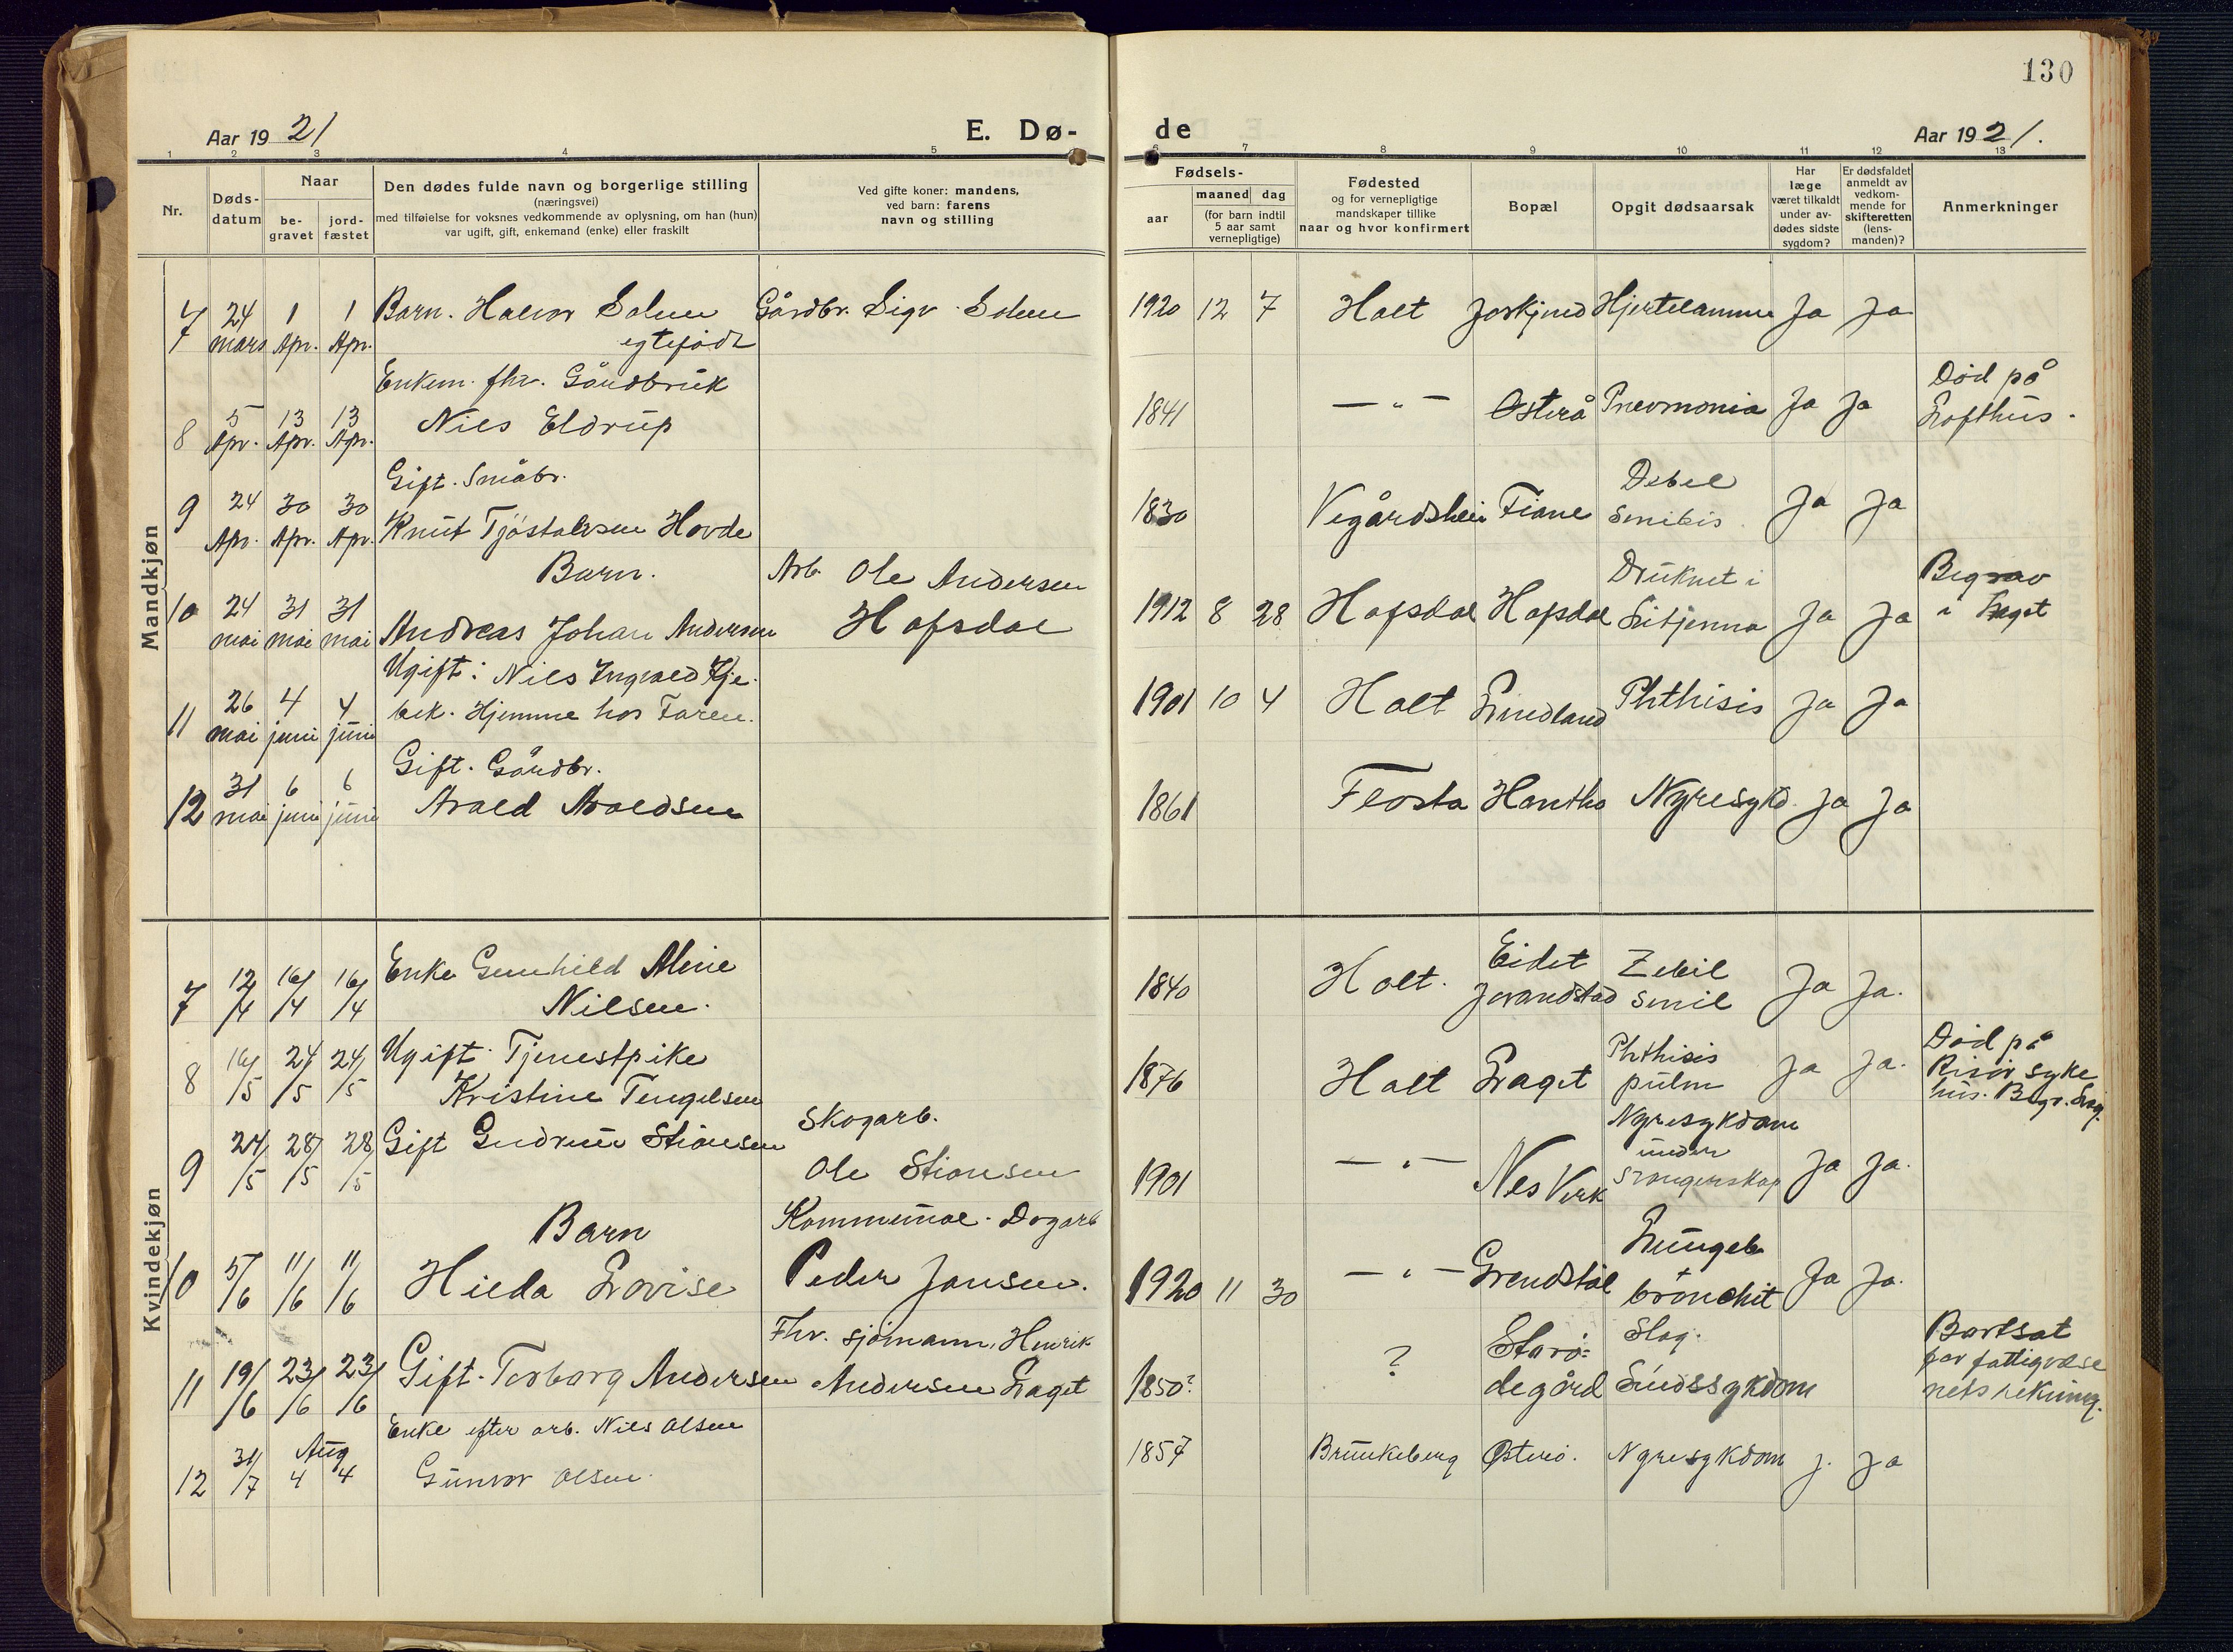 130
Aar 1921
E. Dø-
de
Aar 1921.
1 2 3 4 5 6 7 8 9 10 11 12 13
Nr.
Døds-
datum
Naar
be-
gravet
jord-
fæstet
Den dødes fulde navn og borgerlige stilling
(næringsvei)
med tilføielse for voksnes vedkommende av oplysning, om han (hun)
var ugift, gift, enkemand (enke) eller fraskilt
Ved gifte koner: mandens,
ved barn: farens
navn og stilling
Fødsels-
aar
maaned dag
(for barn indtil
5 aar samt
vernepligtige)
Fødested
og for vernepligtige
mandskaper tillike
naar og hvor konfirmert
Bopæl
Opgit dødsaarsak
Har
læge
været tilkaldt
under av-
dødes sidste
sygdom?
Er dødsfaldet
anmeldt av
vedkom-
mende for
skifteretten
(lens-
manden)?
Anmerkninger
Mandkjøn
7 24 mars 1 Apr. 1 Apr. Barn. Halvor Solum Gårdbr. Sigv. Solum 1920 12 7 Holt Hjertelamme Ja Ja
egtefødt
Enkem. fhv. Gårdbruk
8 5 Apr. 13 Apr. 13 Apr. Nils Eldrup 1841 — " — Østerå Pneumonia Ja Ja Død på
Lofthus.
Gift. Småbr.
9 24 Apr. 30 Apr. 30 Apr. Knut Tjøstolvsen Hovde 1830 Vegårdshei Fiane Debil
Senibis Ja Ja
Barn. Arb. Ole Andersen
10 24 mai 31 mai 31 mai Andreas Johan Andersen Hofsdal 1912 8 28 Hofsdal Hofsdal Druknet i
Litjenna Ja Ja Begrav
i Laget
Ugift: Nils Ingvald Kje-
11 26 mai 4 juni 4 juni bek. Hjemme hos Faren. 1901 10 4 Holt Lindland Phthisis Ja Ja
Gift. Gårdbr.
12 31 mai 6 juni 6 juni Avald Avaldsen 1861 Flosta Hantho Nyresykd. Ja Ja
Kvindekjøn
7 12/4 16/4 16/4 Enke Gunhild Aline
Nilsen. 1840 Holt. Eidet
Jorandstad Zebil
senil Ja Ja.
8 16/5 24/5 24/5 Ugift. Tjenestpike
Kristine Tengelsen 1876 Holt Laget Phthisis
pulm Ja Ja. Død på
Risør syke
hus. Begr. Lag.
9 24/5 28/5 28/5 Gift Gudrun Stiansen Skogarb.
Ole Stiansen 1901 — " — Nes Verk Nyresykdom
under
svangerskap Ja Ja.
Barn Kommunal. Dagarb
10 5/6 11/6 11/6 Hilda Lovise Peder Jansen. 1920 11 30 — " — Grendstøl Lungeb
+
bronchit Ja Ja.
Fhv. sjømann, Henrik
11 19/6 23/6 23/6 Gift. Torborg Andersen Andersen Laget 1850? ? degård Slag.
Sindssykdom Bortsat
for fattigvæse
nets rekning.
Enke efter arb. Nils Olsen
12 31/7 Aug 4 4 Gunvor Olsen. 1857 Brunkeberg Østerå. Nyresykdom J. Ja